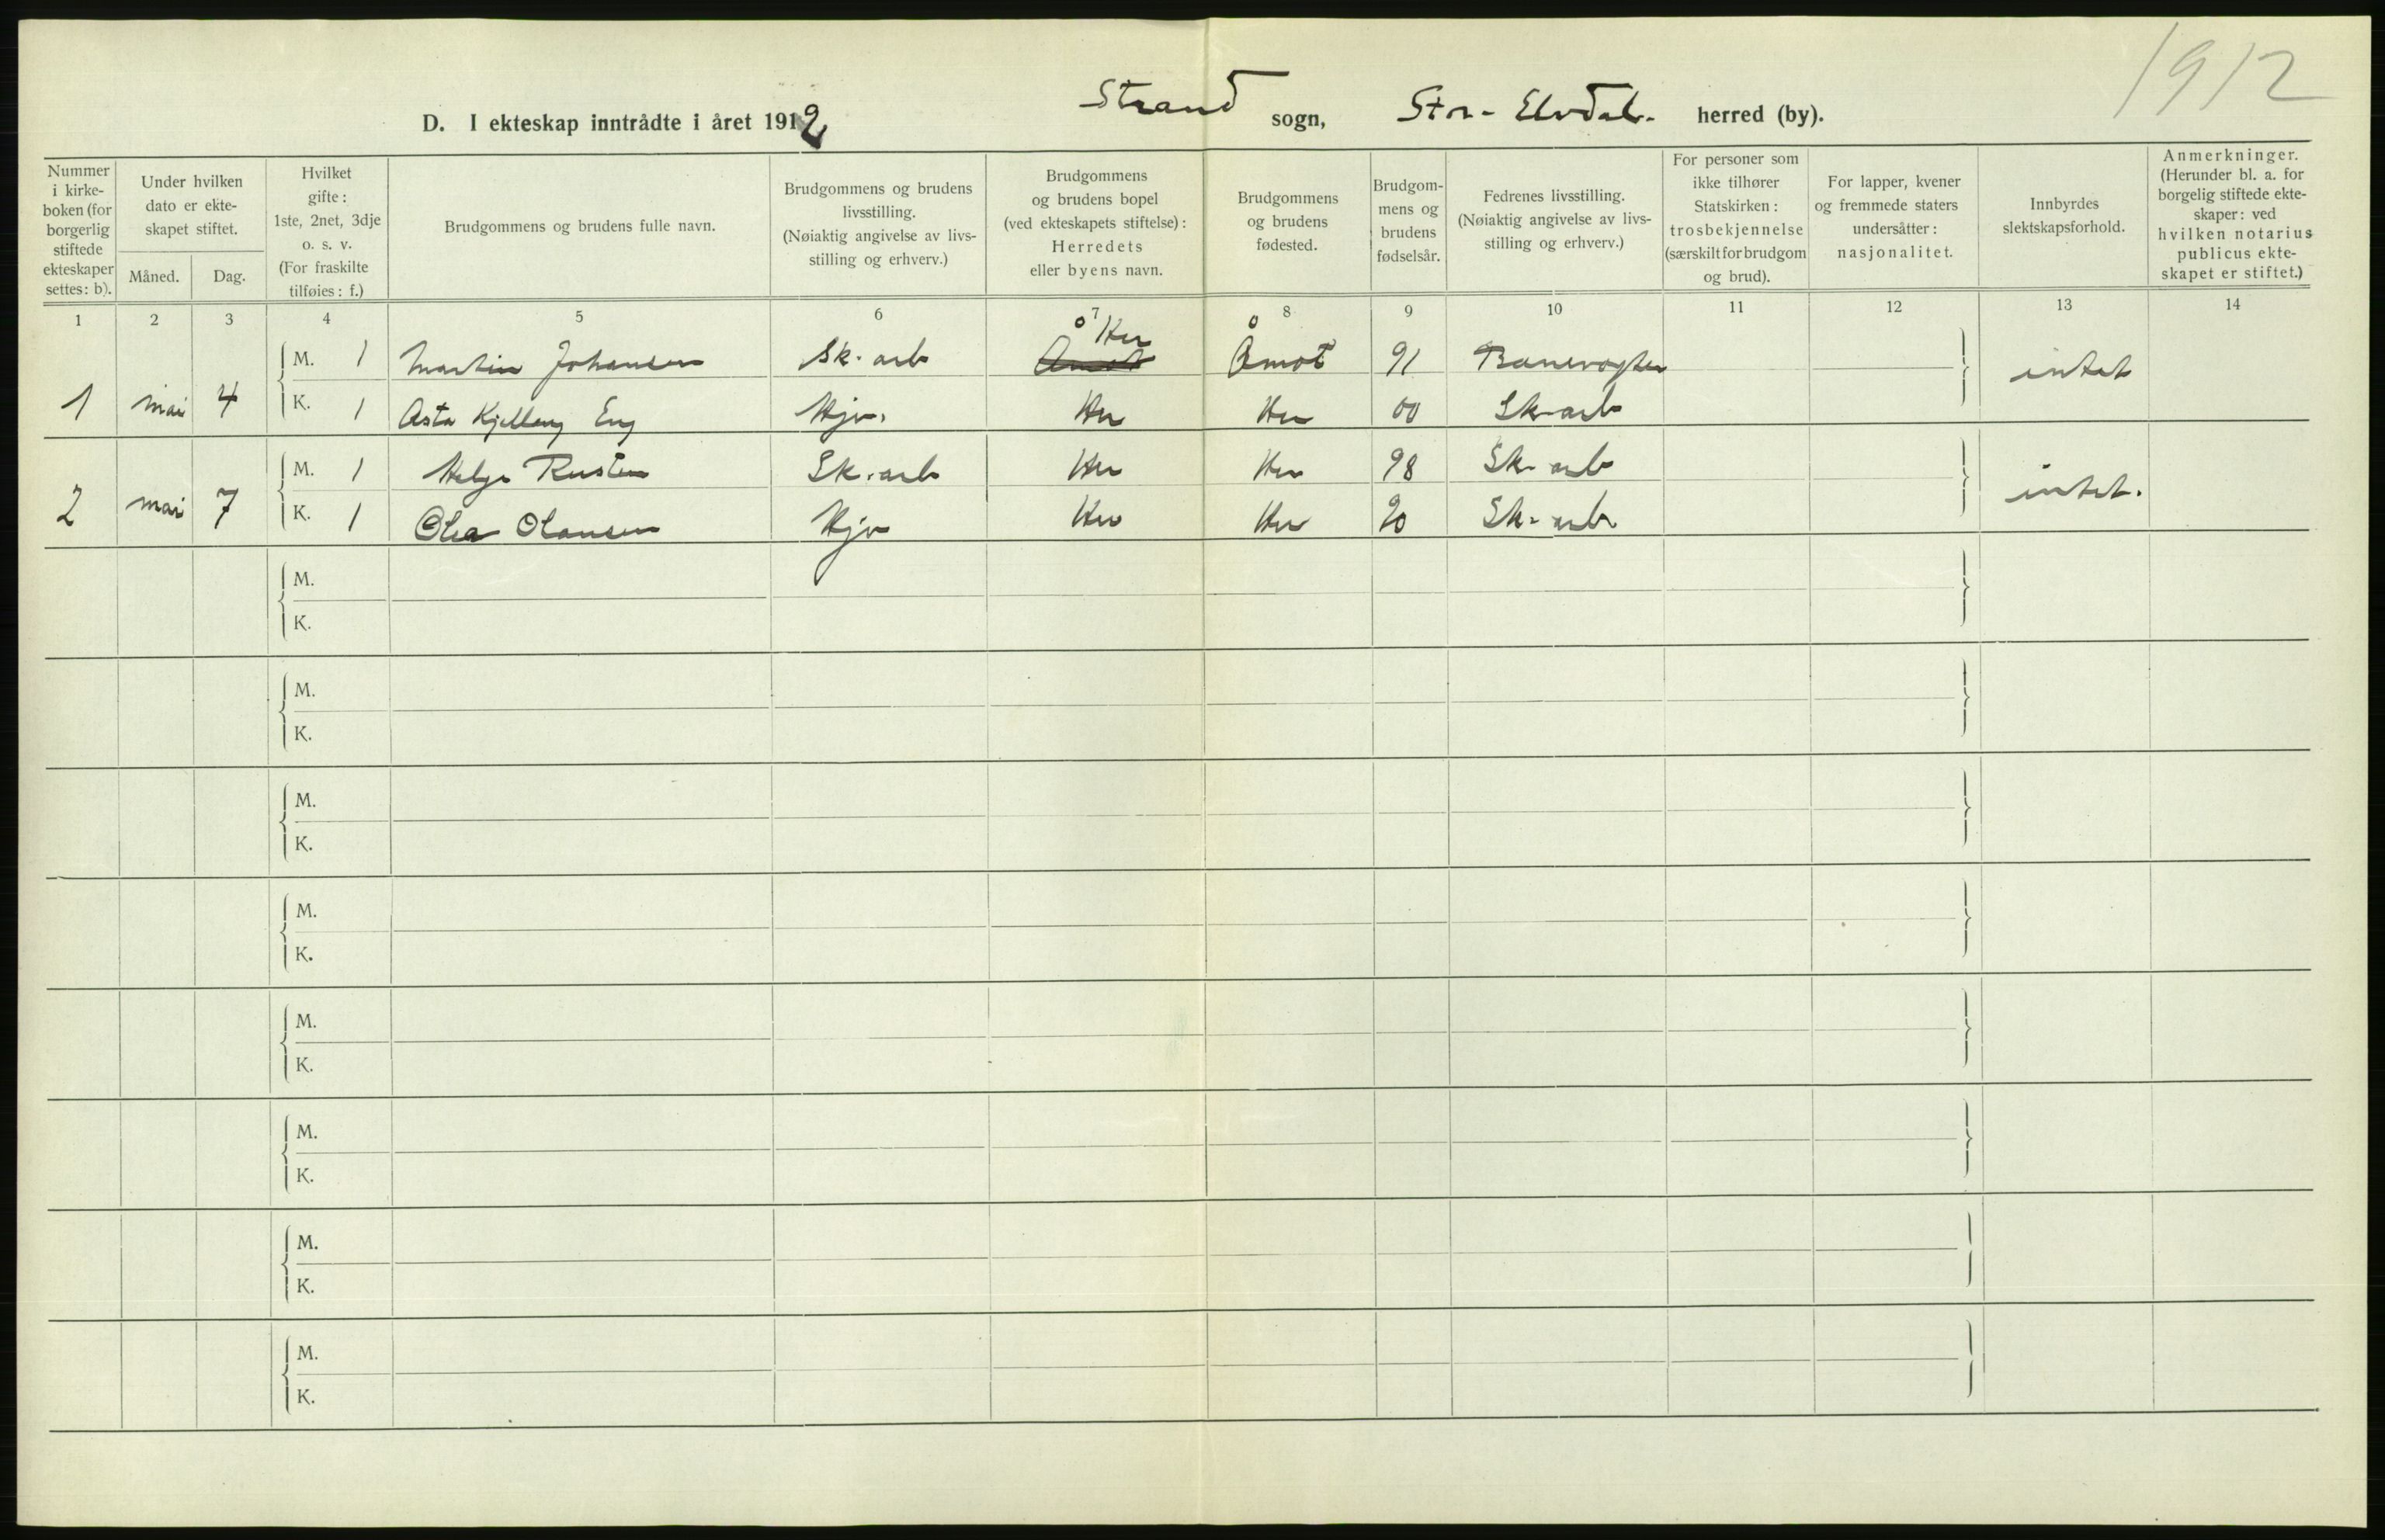 1912
D. I ekteskap inntrådte i året 1912 Strand sogn, Stor-Elvdal. herred (by).
Nummer i kirke-boken (for borgerlig stiftede ekteskaper settes: b).
Under hvilken dato er ekte-skapet stiftet.
Måned. Dag.
Hvilket gifte: 1ste, 2net, 3dje o. s. v. (For fraskilte tilføies: f.)
Brudgommens og brudens fulle navn.
Brudgommens og brudens livsstilling. (Nøiaktig angivelse av livs-stilling og erhverv.)
Brudgommens og brudens bopel (ved ekteskapets stiftelse): Herredets eller byens navn.
Brudgommens og brudens fødested.
Brudgom-mens og brudens fødselsår.
Fedrenes livsstilling. (Nøiaktig angivelse av livs-stilling og erhverv.)
For personer som ikke tilhører Statskirken: trosbekjennelse (særskilt for brudgom og brud).
For lapper, kvener og fremmede staters undersåtter: nasjonalitet.
Innbyrdes slektskapsforhold.
Anmerkninger. (Herunder bl. a. for borgelig stiftede ekte-skaper: ved hvilken notarius publicus ekte-skapet er stiftet.)
1 2 3 4 5 6 7 8 9 10 11 12 13 14
M. 1 Martin Johansen Sk. arb Åmot Her Åmot 91 Banevogter
1 mai 4 intet
K. 1 Asta Kjellaug Eng Hjv. Her Her 00 Sk-arb
M. 1 Helge Rusten Sk. arb Her Her 98 Sk. arb
2 mai 7 intet.
K. 1 Olea Olausen Hjv Her Her 20 Sk- arb
M.
K.
M.
K.
M.
K.
M.
K.
M.
K.
M.
K.
M.
K.
M.
K.